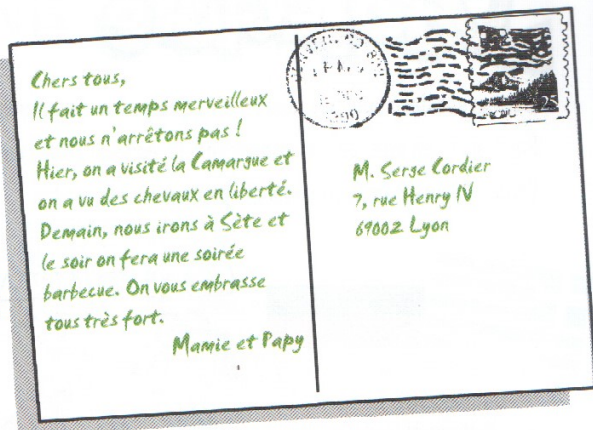 Chers tous,
Il fait un temps merveilleux
et nous n'arrêtons pas !
Hier, on a visité la Camargue et
on a vu des chevaux en liberté.
Demain, nous irons à Sète et
le soir on fera une soirée
barbecue. On vous embrasse
tous très fort.
Mamie et Papy
25
M. Serge Cordier
7, rue Henry IV
69002 Lyon